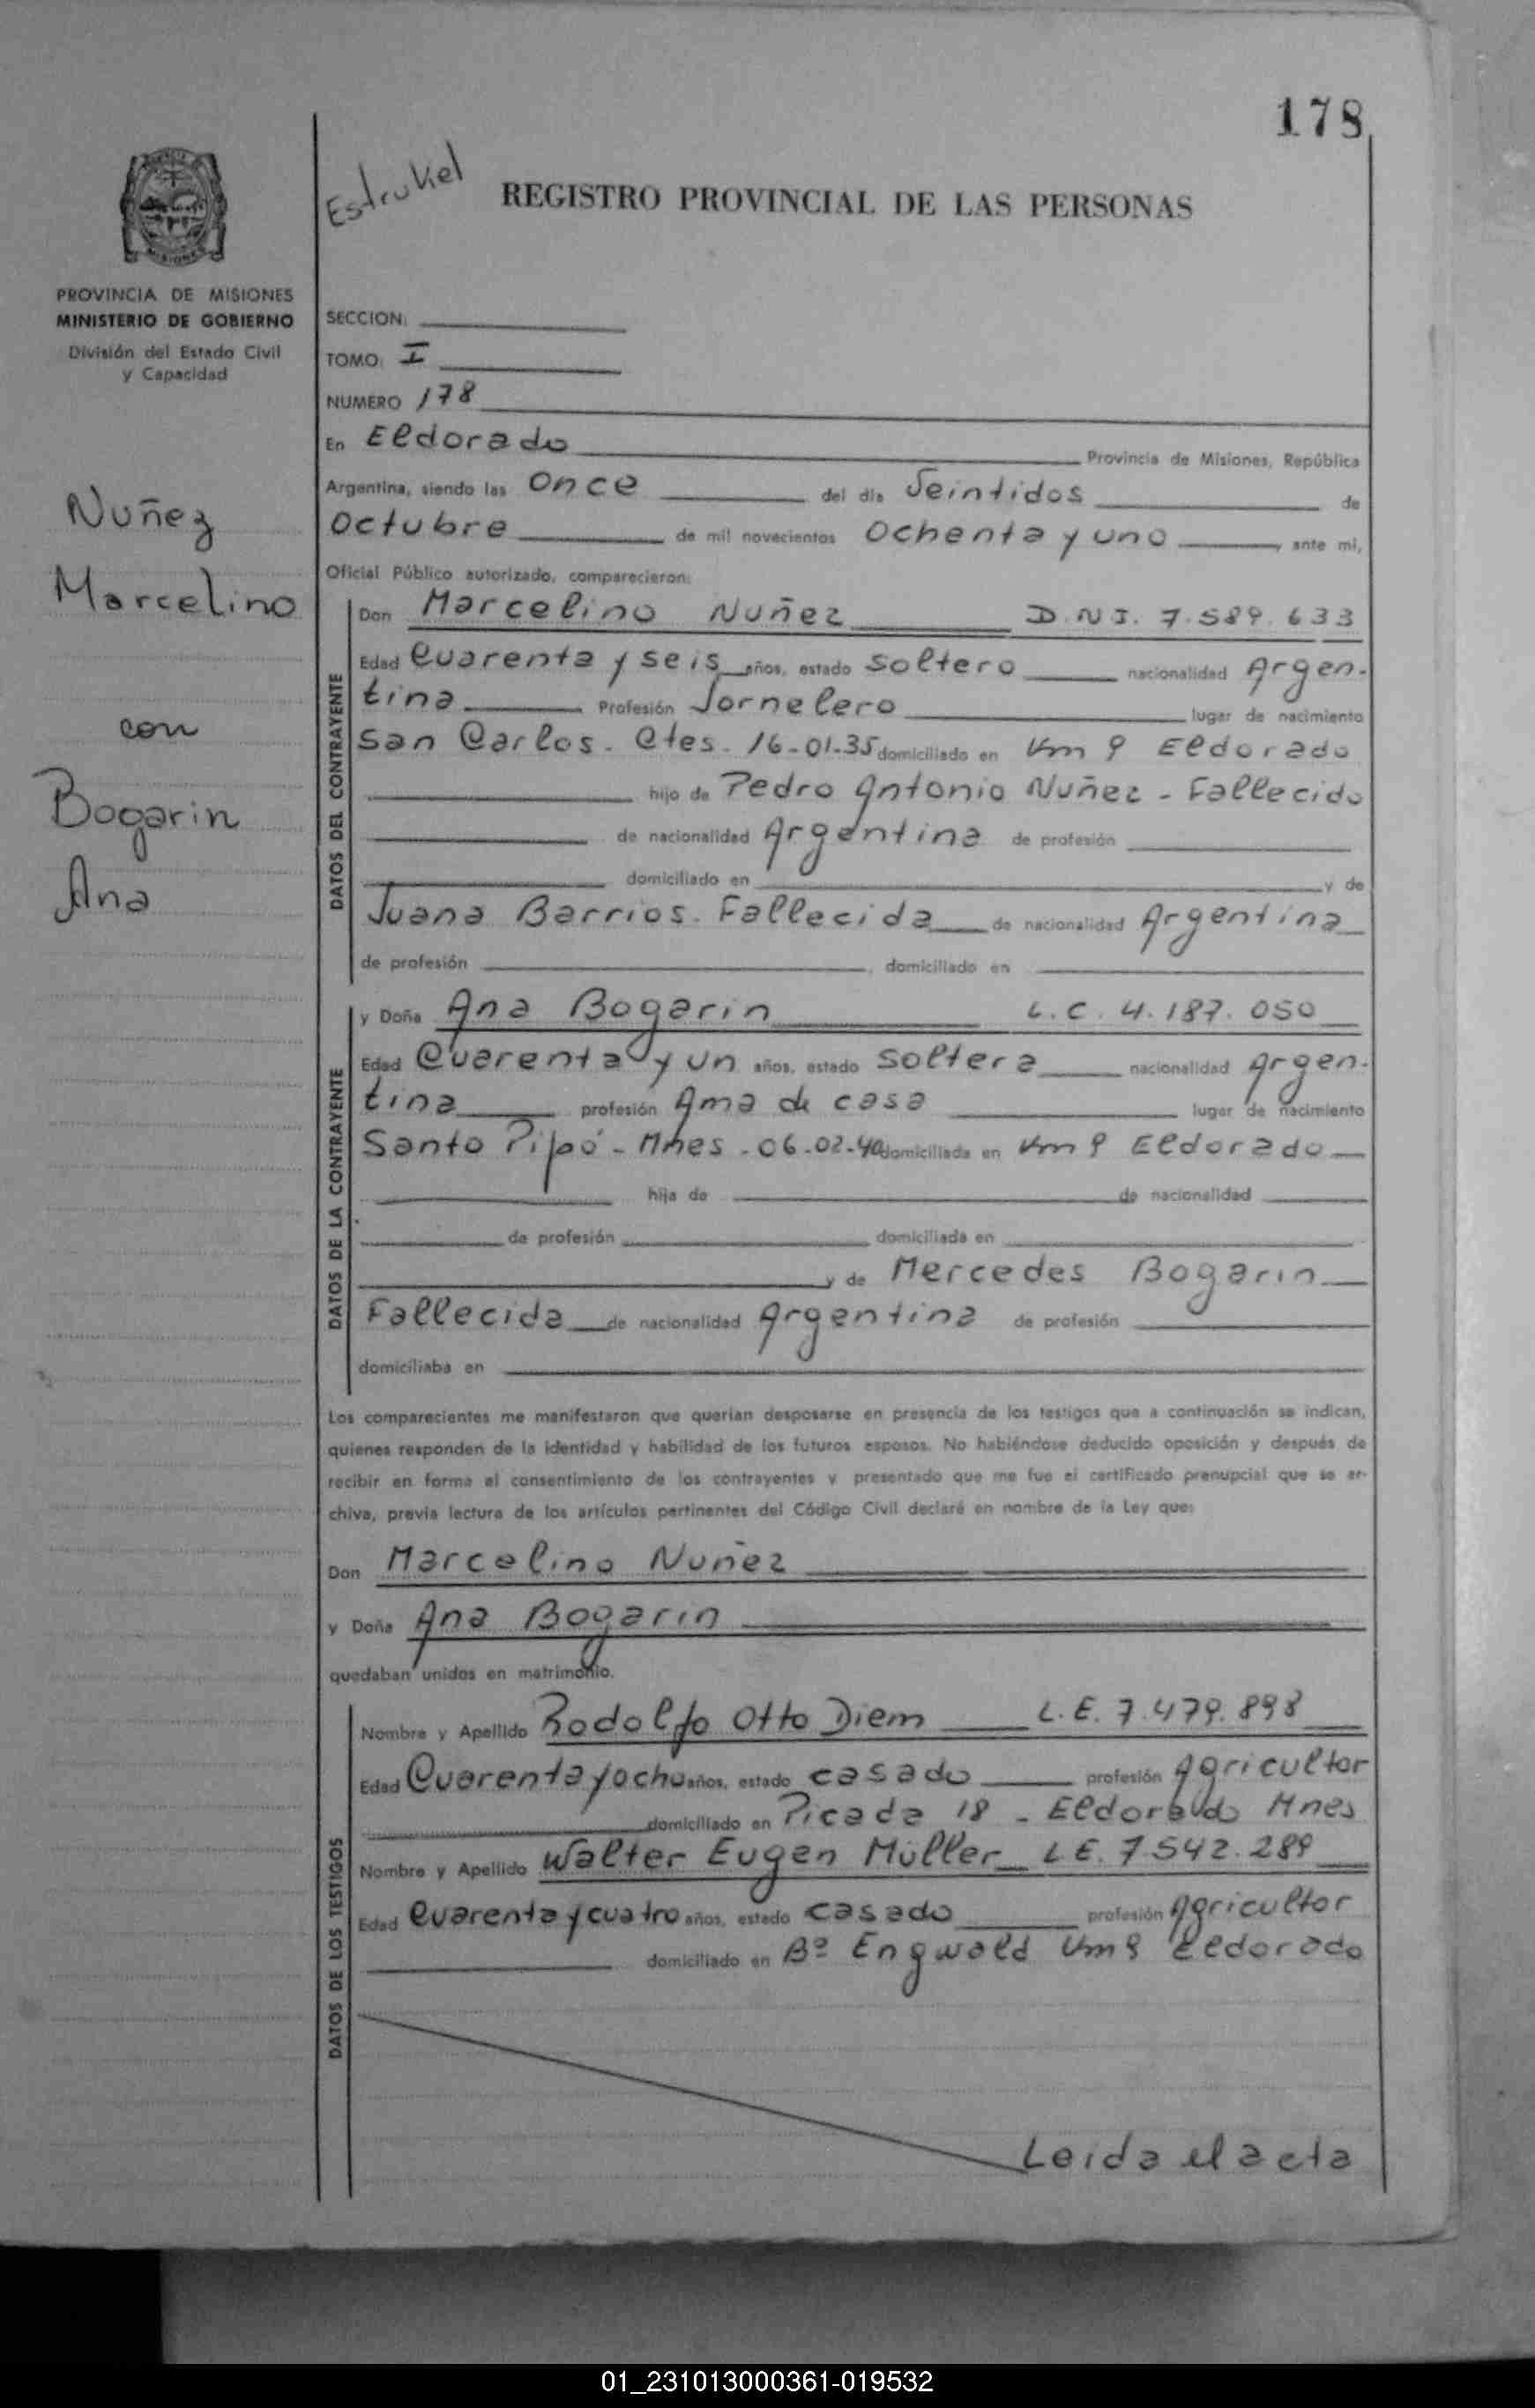 178
Estrukel
REGISTRO PROVINCIAL DE LAS PERSONAS
PROVINCIA DE MISIONES
MINISTERIO DE GOBIERNO
División del Estado Civil
y Capacidad
SECCION:
TOMO: I
NUMERO 178
En Eldorado Provincia de Misiones, República
Argentina, siendo las Once del día Veintidos de
Octubre de mil novecientos Ochenta y uno ante mi,
Oficial Público autorizado, comparecieron:
Nuñez
Marcelino
con
Bogarin
Ana
DATOS DEL CONTRAYENTE
Don Marcelino Nuñez D.N.I. 7.589.633
Edad Cuarenta y seis años, estado soltero nacionalidad Argen-
tina Profesión Jornelero lugar de nacimiento
San Carlos. Ctes. 16-01-35 domiciliado en Km 9 Eldorado
hijo de Pedro Antonio Nuñez - Fallecido
de nacionalidad Argentina de profesión
domiciliado en y de
Juana Barrios. Fallecida de nacionalidad Argentina
de profesión , domiciliado en
DATOS DE LA CONTRAYENTE
y Doña Ana Bogarin L.C. 4.187.050
Edad Cuarenta y un años, estado soltera nacionalidad Argen-
tina profesión Ama de casa lugar de nacimiento
Santo Pipó - Mnes - 06-02-40 domiciliada en Km 9 Eldorado
hija de de nacionalidad
de profesión domiciliada en
y de Mercedes Bogarin
Fallecida de nacionalidad Argentina de profesión
domiciliaba en
Los comparecientes me manifestaron que querían desposarse en presencia de los testigos que a continuación se indican,
quienes responden de la identidad y habilidad de los futuros esposos. No habiéndose deducido oposición y después de
recibir en forma el consentimiento de los contrayentes y presentado que me fue el certificado prenupcial que se ar-
chiva, previa lectura de los artículos pertinentes del Código Civil declaré en nombre de la Ley que:
Don Marcelino Nuñez
y Doña Ana Bogarin
quedaban unidos en matrimonio.
DATOS DE LOS TESTIGOS
Nombre y Apellido Rodolfo Otto Diem L.E. 7.479.898
Edad Cuarenta y ocho años, estado casado profesión Agricultor
domiciliado en Picada 18 - Eldorado Mnes
Nombre y Apellido Walter Eugen Müller L E. 7.542.289
Edad Cuarenta y cuatro años, estado casado profesión Agricultor
domiciliado en Bº Engwald Km 9 Eldorado
Leida el acta
01_231013000361-019532